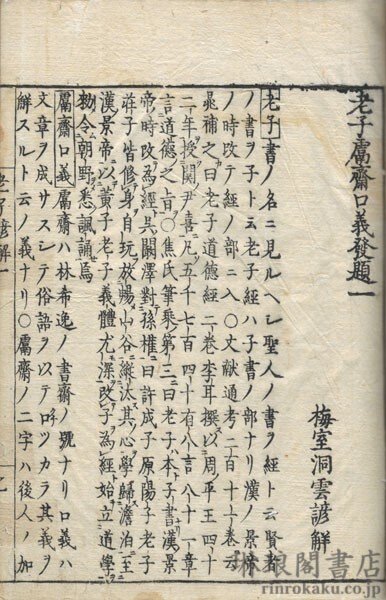 老子鬳齋口義發題一
梅室洞雲諺解
老子書ノ名ニ見ルヘシ聖人ノ書ヲ經ト云賢者
ノ書ヲ子ト云老子經ハ子書ノ部ナリ漢ノ景帝
ノ時改テ經ノ部ニ入〇文献通考二百十一卷云
晁補之曰老子道德經二卷李耳撰以周平王四十
二年授関尹喜凡五千七百四十有八言八十一章
言道德之旨〇焦氏筆乗第三曰老子本子書漢景
帝時改為經呉闞澤對孫權曰許成子原陽子老子
莊子皆修身自玩放暢山谷縦汰其心學歸澹泊至
漢景帝以黃子老子義體尤深改子為經始立道學
勑令朝野悉諷誦焉
鬳齋口義鬳齋ハ林希逸ノ書齋ノ號ナリ口義ハ
文章ヲ成サスシテ俗語ヲ以テロツカラ其義ヲ
解スルト云ノ義ナリ〇鬳齋ノ二字ハ後人ノ加
老子諺解一
琳琅閣書店
rinrokaku.co.jp